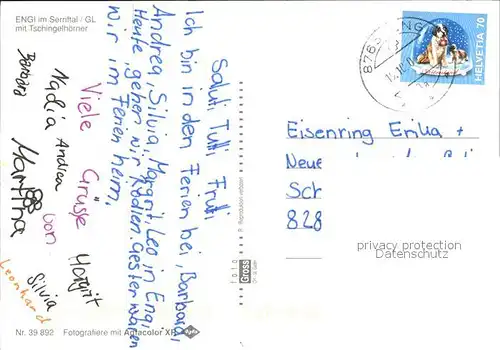 ENGI im Sernftal / GL
mit Tschingelhörner
Salut, Tutti Frutti
Ich bin in den Ferien bei, Barbara,
Andrea, Silvia, Margrit, Leo in Engi,
Heute, gehen wir Rodlen. Gestern waren
wir im Ferien heim,
Viele Grüsse
von
Nadia Andrea Margrit
Barbara Martina Silvia
Leonhard
Nr. 39 892 Fotografiere mit Agfacolor XR
© Reproduktion verboten
foto
Gross
HELVETIA 70
8765 ENGI
Eisenring Emilia +
Neue
Sch
828
privacy protection
Datenschutz